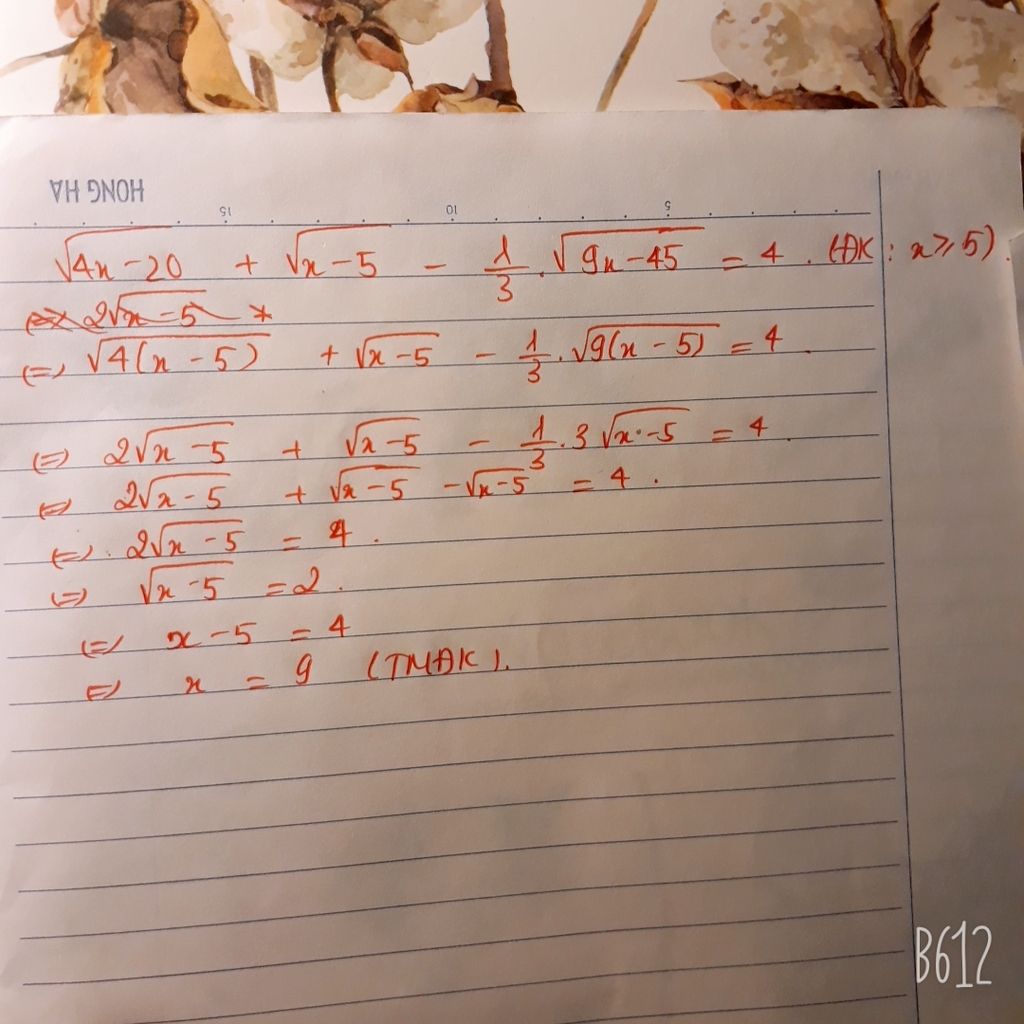 HONG HA
15 10 5
√(4x-20) + √(x-5) - 1/3 . √(9x-45) = 4 . (ĐK : x ≥ 5).
<=> √(4(x-5)) + √(x-5) - 1/3 . √(9(x-5)) = 4 .
<=> 2√(x-5) + √(x-5) - 1/3 . 3√(x-5) = 4 .
<=> 2√(x-5) + √(x-5) - √(x-5) = 4 .
<=> . 2√(x-5) = 4 .
<=> √(x-5) = 2 .
<=> x - 5 = 4
<=> x = 9 (TMĐK).
B612